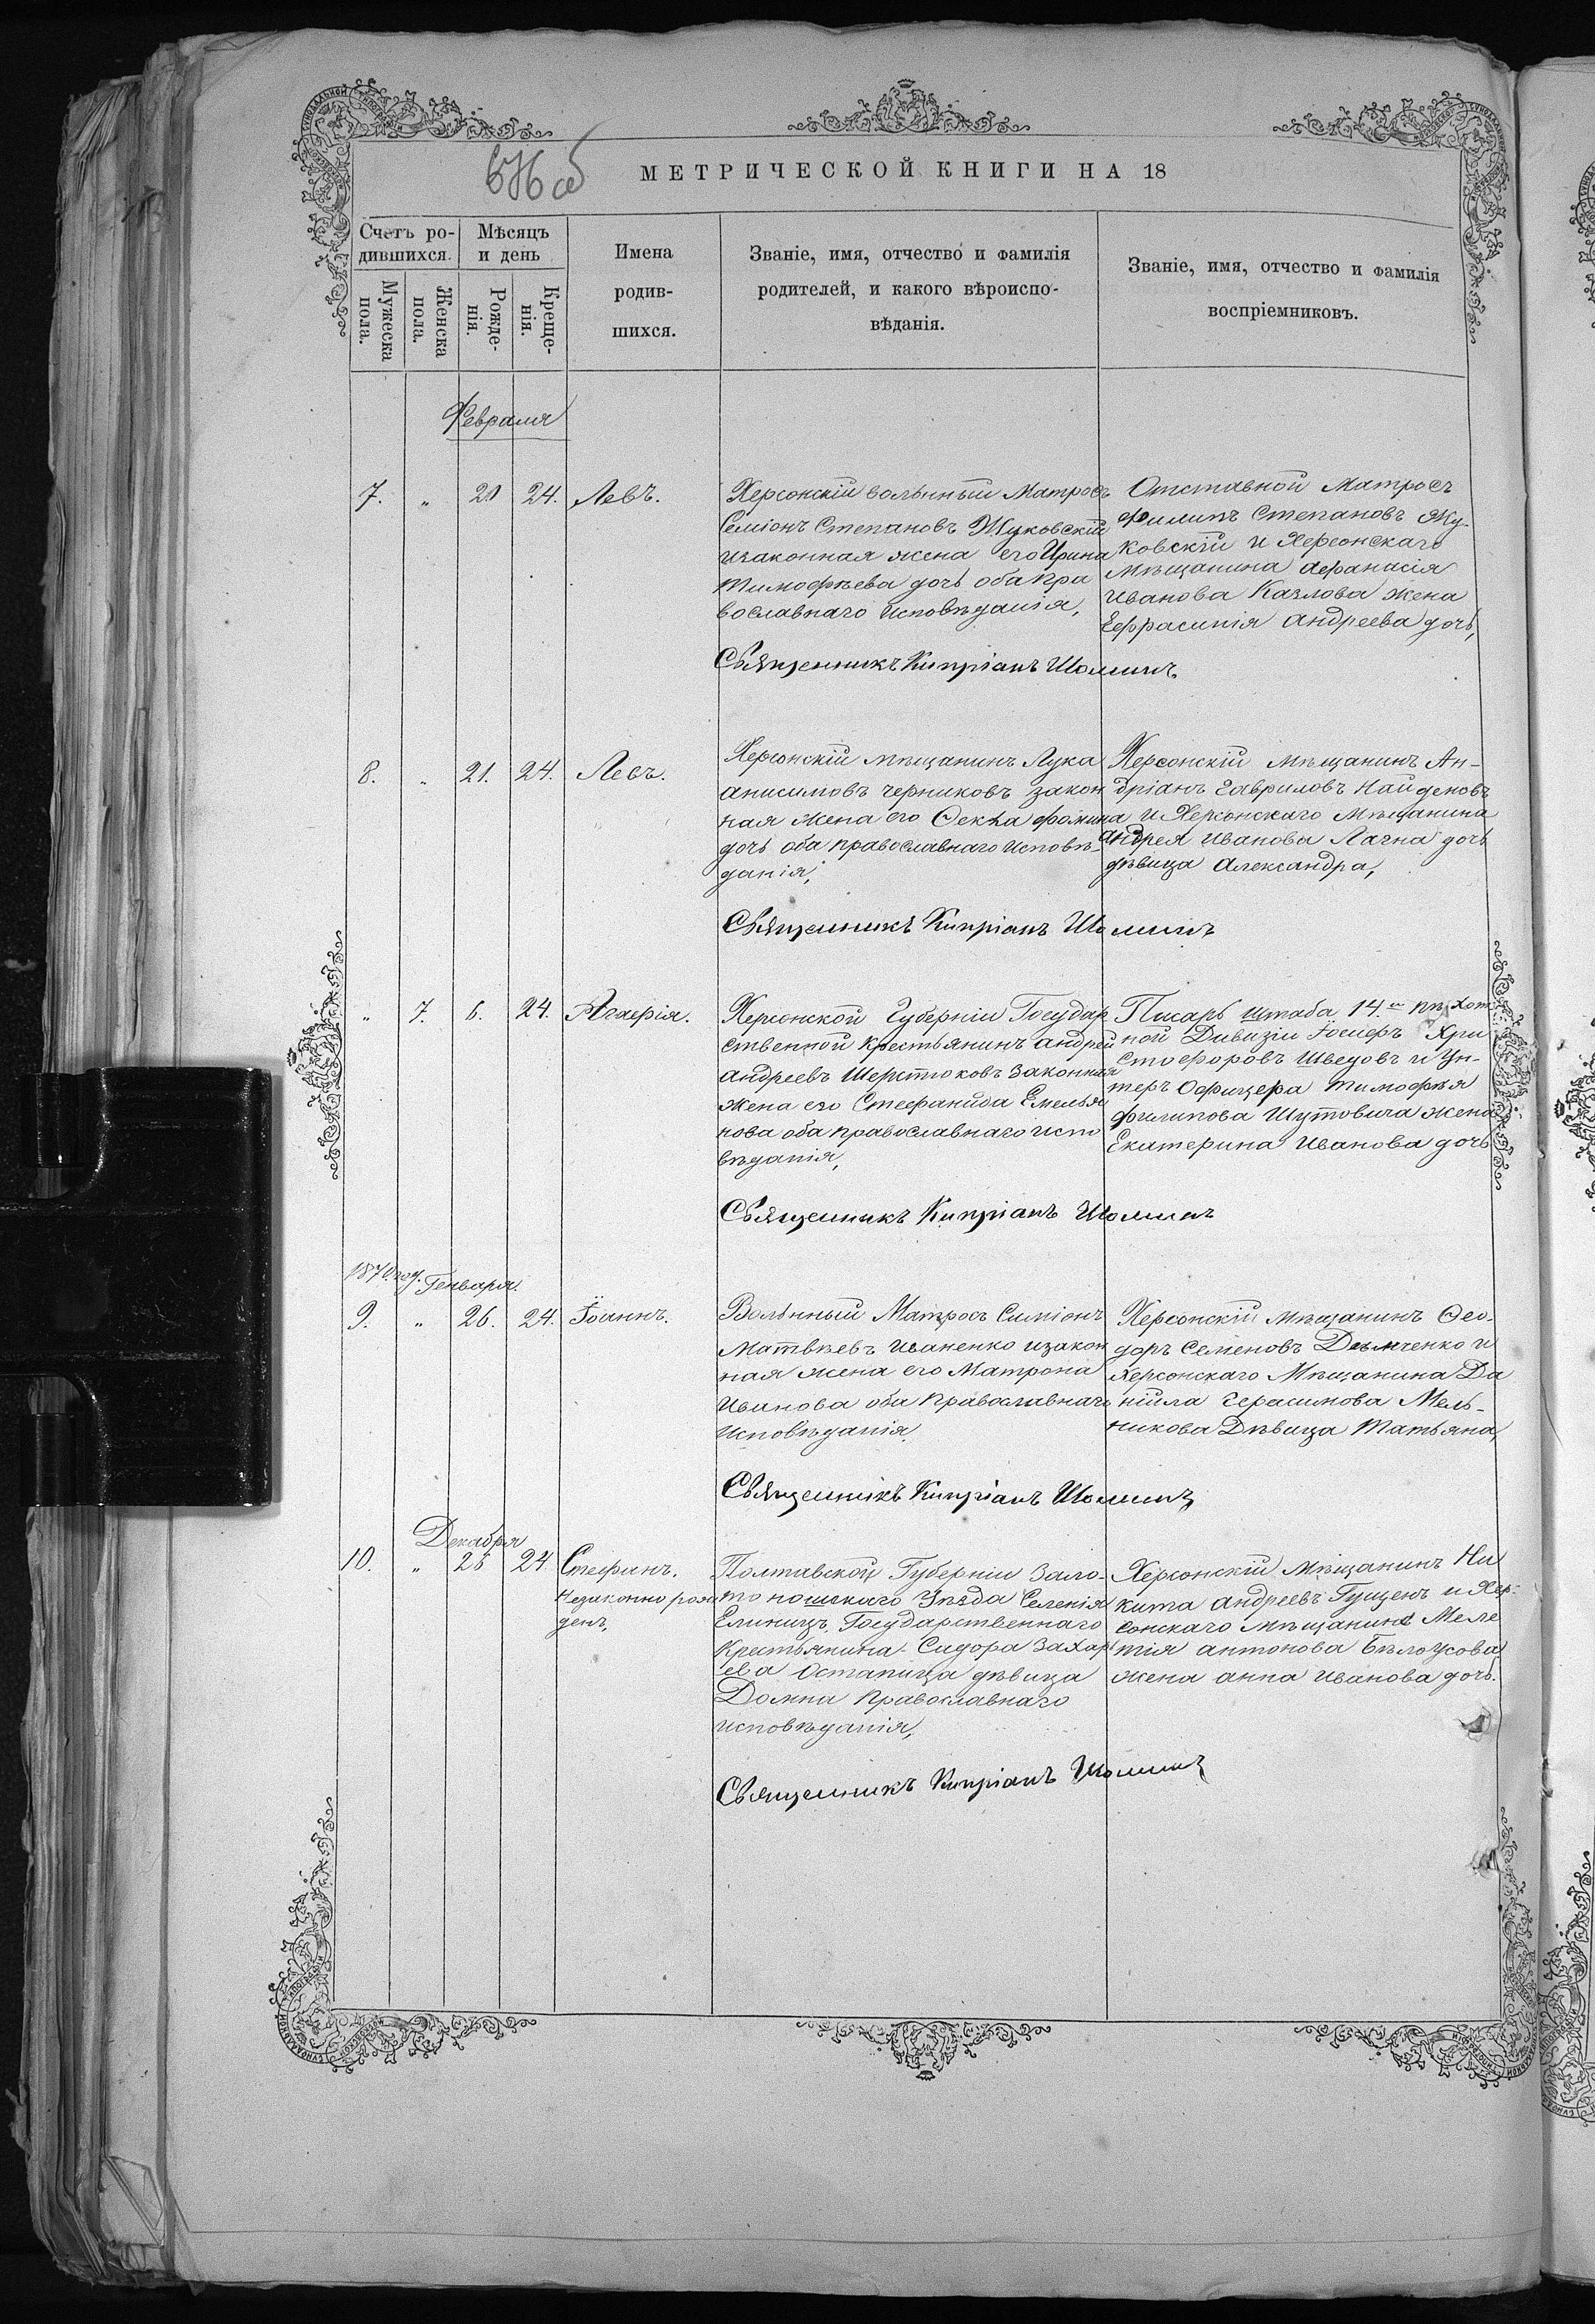 МЕТРИЧЕСКОЙ КНИГИ НА 18
Счетъ ро-
дившихся.
Мужеска
пола.
Женска
пола.
Мѣсяцъ
и день
Рожде-
нія.
Креще-
нія.
Имена
родив-
шихся.
Званіе, имя, отчество и фамилія
родителей, и какого вѣроиспо-
вѣданія.
Званіе, имя, отчество и фамилія
воспріемниковъ.
Февраля
7. „ 20 24. Левъ.
Херсонскій вольнный Матросъ
Семіонъ Степановъ Жуковскій
изаконная жена его Ирина
Тимофѣева дочь оба пра
вославнаго исповѣданія,
Отставной Матросъ
Филипъ Степановъ Жу-
ковскій и Херсонскаго
Мѣщанина Афанасія
Иванова Казлова жена
Ефрасинія Андреева дочь,
Священникъ Кипріанъ Шоминъ
8. „ 21. 24. Левъ.
Херсонскій мѣщанинъ Лука
Анисимовъ Черниковъ закон
ная жена его Ѳекла Фомина
дочь оба православнаго исповѣ-
данія,
Херсонскій мѣщанинъ Ан-
дріанъ Гавриловъ Найденовъ
и Херсонскаго мѣщанина
Андрея Иванова Лагна дочь
дѣвица Александра,
Священникъ Кипріанъ Шоминъ
„ 7. 6. 24. Агафія.
Херсонской Губерніи Государ
ственной крестьянинъ Андрей
Андреевъ Шерстюковъ законная
жена его Стефанида Емелья
нова оба православнаго испо
вѣданія,
Писарь штаба 14.й пѣхот
ной Дивизіи Іосифъ Хри
стофоровъ Шведовъ и Ун-
теръ Офицера Тимофѣя
Филипова Шутовича жена
Екатерина Иванова дочь
Священникъ Кипріанъ Шоминъ
1870 год. Генваря.
9. „ 26. 24. Іоаннъ.
Вольнный Матросъ Симіонъ
Матвѣевъ Иваненко изакон
ная жена его Матрона
Иванова оба православнаго
исповѣданія
Херсонскій мѣщанинъ Ѳео-
доръ Семеновъ Демченко и
Херсонскаго Мѣщанина Да
ніила Герасимова Мель-
никова Дѣвица Татьяна,
Священникъ Кипріанъ Шоминъ
Декабря
10. „ 28 24 Стефанъ.
Незаконно рож
денъ,
Полтавской Губерніи Золо-
тоношскаго Уѣзда Селенія
Елиницъ Государственнаго
Крестьянина Сидора Захарь
ева Остапица дѣвица
Домна православнаго
исповѣданія,
Херсонскій мѣщанинъ Ни
кита Андреевъ Гущенъ и Хер-
сонскаго мѣщанина Меле
тія Антонова Бѣлоусова
жена Анна Иванова дочь.
Священникъ Кипріанъ Шоминъ